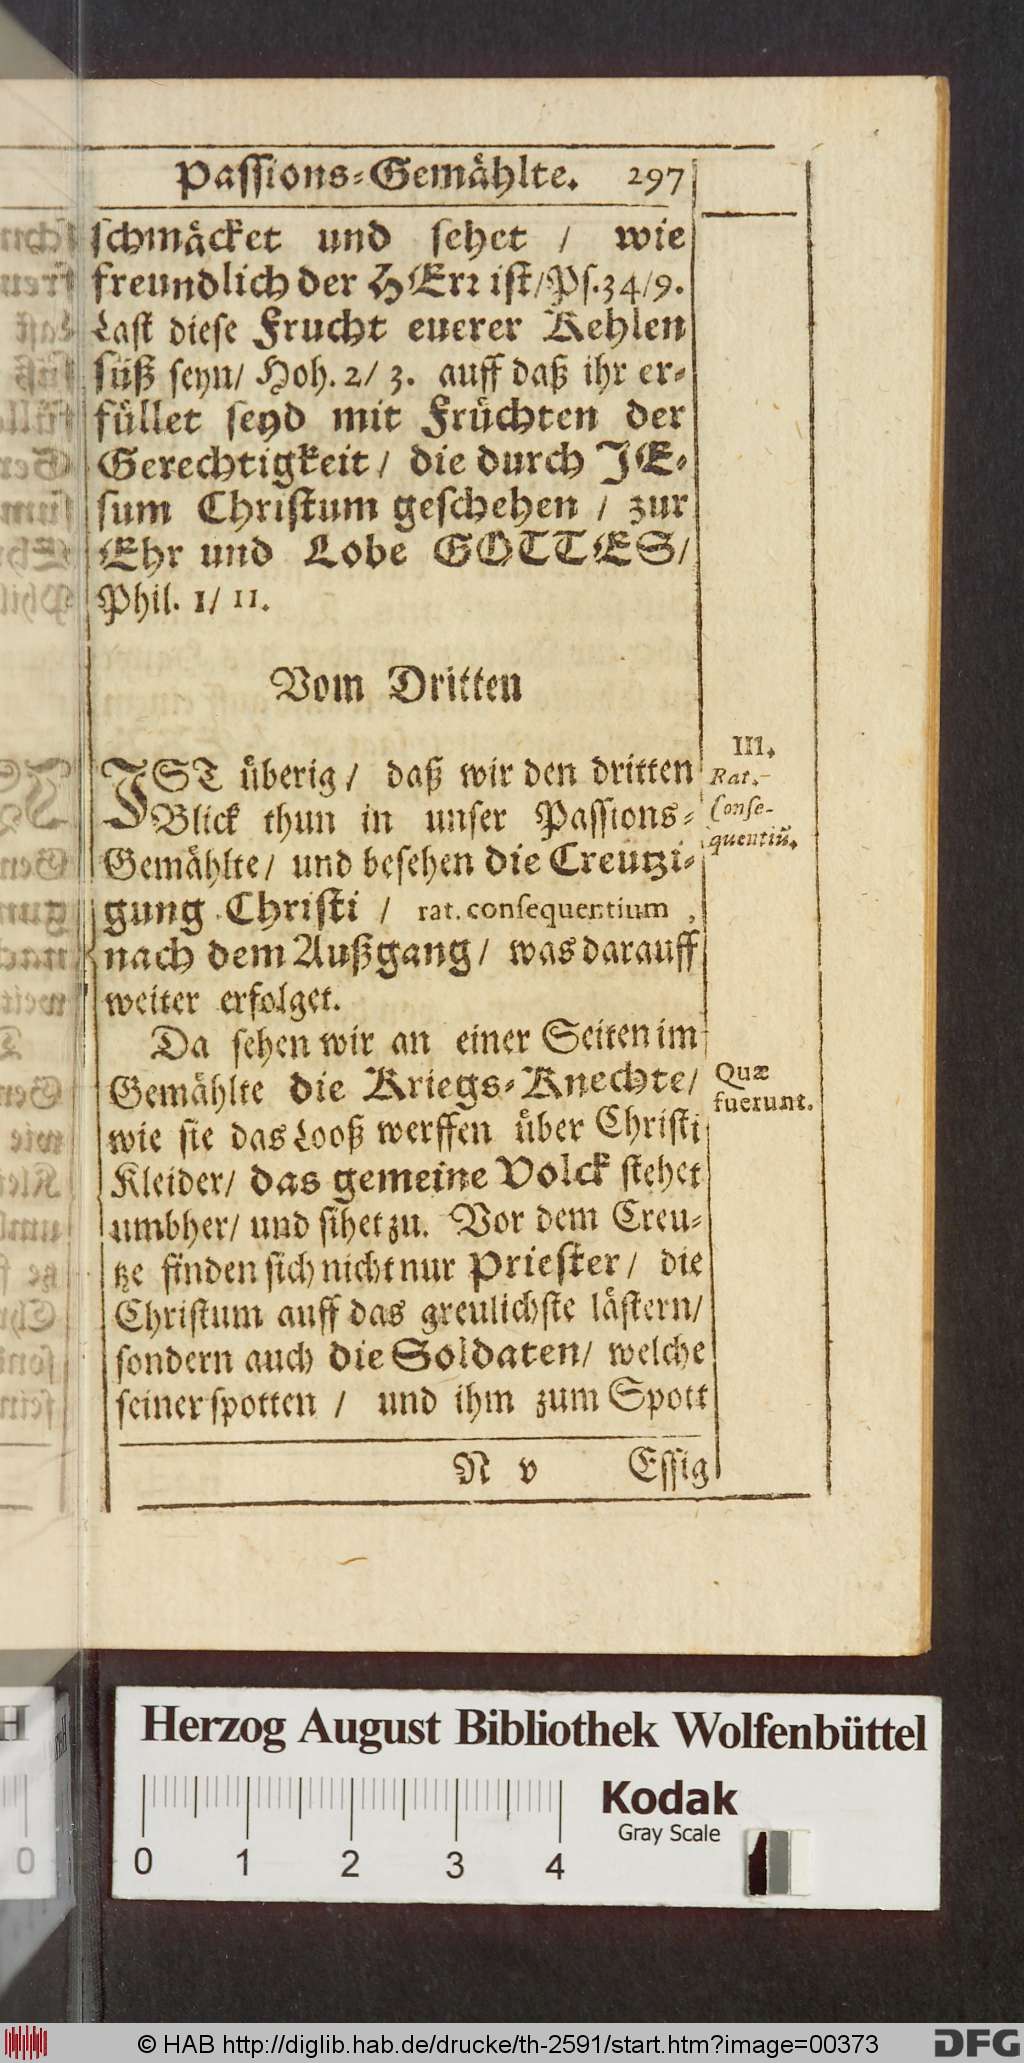 Passions-Gemählte. 297
schmäcket und sehet / wie
freundlich der HErr ist/Ps.34/9.
Last diese Frucht euerer Kehlen
süß seyn/ Hoh. 2/ 3. auff daß ihr er-
füllet seyd mit Früchten der
Gerechtigkeit / die durch JE-
sum Christum geschehen / zur
Ehr und Lobe GOTTES/
Phil. 1/ 11.
Vom Dritten
JST überig / daß wir den dritten
Blick thun in unser Passions-
Gemählte/ und besehen die Creutzi-
gung Christi / rat. consequentium ,
nach dem Außgang / was darauff
weiter erfolget.
III.
Rat.
Conse-
quentiũ.
Da sehen wir an einer Seiten im
Gemählte die Kriegs-Knechte/
wie sie das Looß werffen über Christi
Kleider/ das gemeine Volck stehet
umbher/ und sihet zu. Vor dem Creu-
tze finden sich nicht nur Priester / die
Christum auff das greulichste lästern/
sondern auch die Soldaten/ welche
seiner spotten / und ihm zum Spott
Quæ
fuerunt.
N v Essig
Herzog August Bibliothek Wolfenbüttel
Kodak
Gray Scale
0 1 2 3 4
© HAB http://diglib.hab.de/drucke/th-2591/start.htm?image=00373
DFG